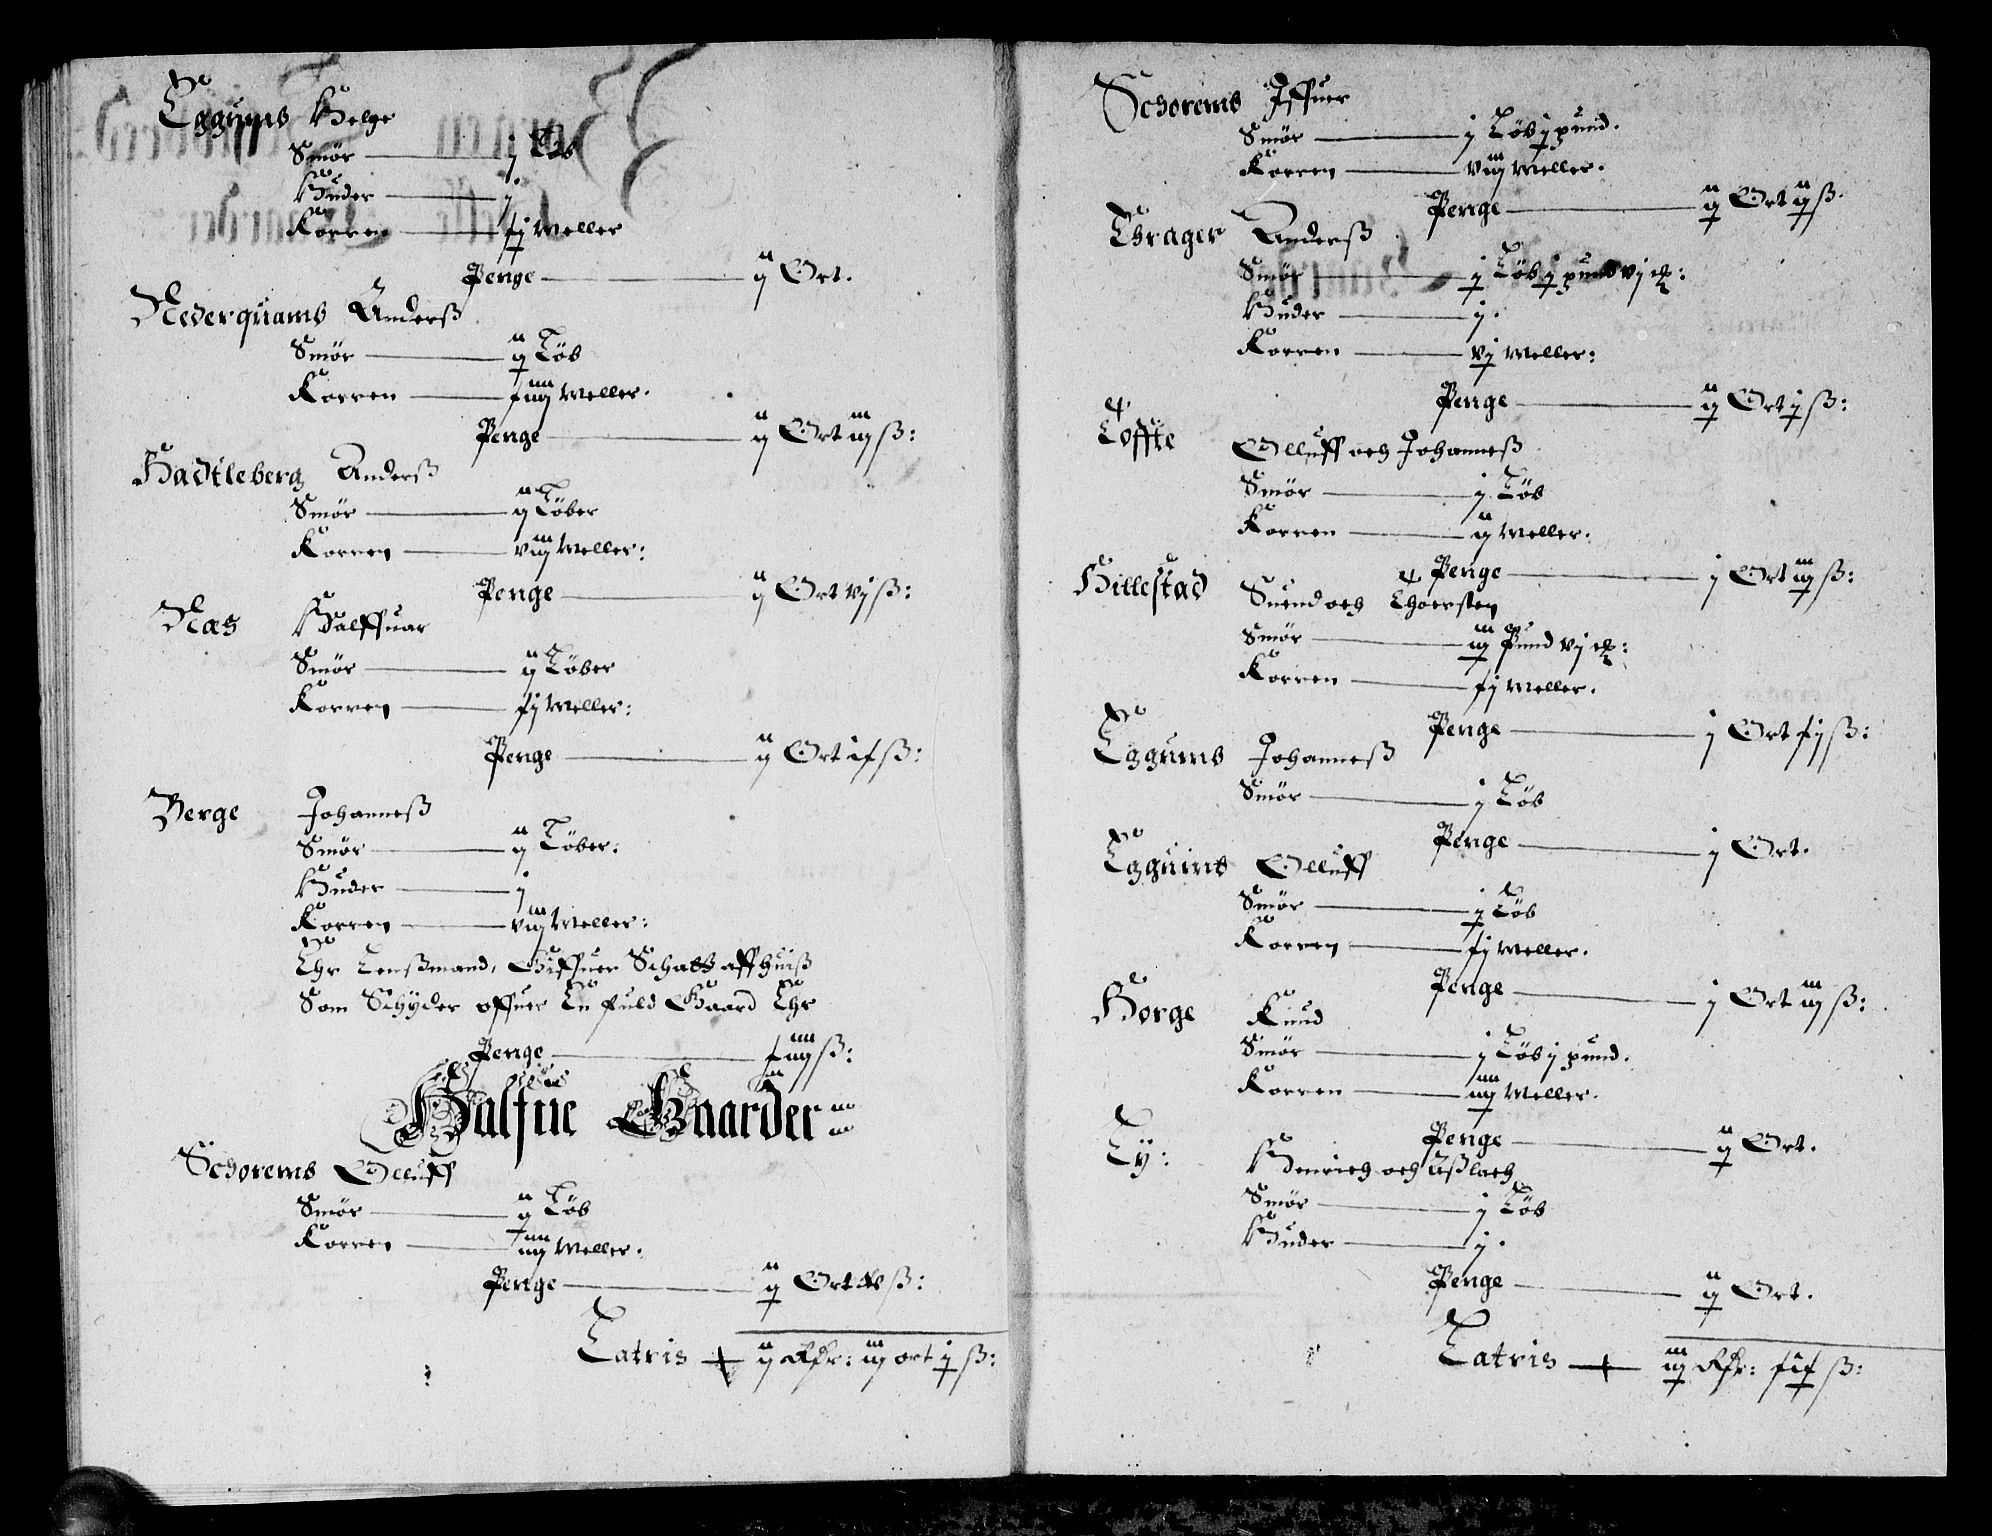 Eggums Helge
Smør j Løb
Huder j
Korren xj Meller
Penge ij Ort.
Nederquams Anderß
Smør ij Løb
Korren xiiij Meller.
Penge ij Ort iij ß:
Hadtleberg Anderß
Smør ij Løber
Korren viij Meller:
Penge ij Ort vj ß:
Næs Halffuar
Smør ij Løber
Korren xj Meller:
Penge ij Ort ix ß:
Berge Johanneß
Smør ij Løber:
Huder j
Korren viij Meller:
Ehr Lenßmand, Giffuer Schatt aff huiß
Som Schyder offuer En fuld Gaard Ehr
Penge xiiij ß:
Halfue Gaarder
Schorems Olluff
Smør ij Løb
Korren iiij Meller.
Penge ij Ort ß:
Latris ij Rdr: iij ort j ß:
Schorems Iffuer
Smør j Løb j pund.
Korren viij Meller.
Penge ij Ort ij ß.
Thrager Anderß
Smør j Løb j pund vj
Huder j.
Korren vj Meller:
Penge ij Ort j ß:
Toffte Olluff och Johanneß
Smør j Løb
Korren ij Meller.
Penge j Ort iij ß:
Hillestad Suend och Thoersten
Smør iij Pund vj
Korren xj Meller.
Penge j Ort xj ß:
Eggums Johanneß
Smør j Løb
Penge j Ort.
Eggums Olluff
Smør j Løb
Korren xj Meller.
Penge j Ort iij ß:
Horge Knud
Smør j Løb j pund.
Korren iiij Meller.
Penge ij Ort.
Ey: Henrich och Aßlach
Smør j Løb
Huder j.
Penge ij Ort.
Latris iij Rdr: xix ß: